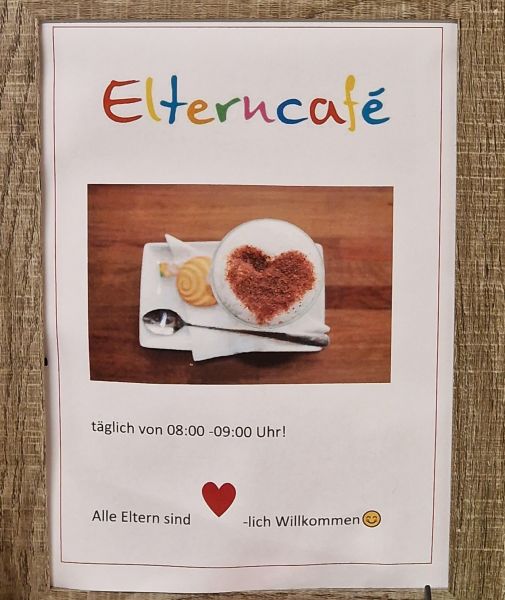 Elterncafé
täglich von 08:00 -09:00 Uhr!
Alle Eltern sind ❤ -lich Willkommen😊